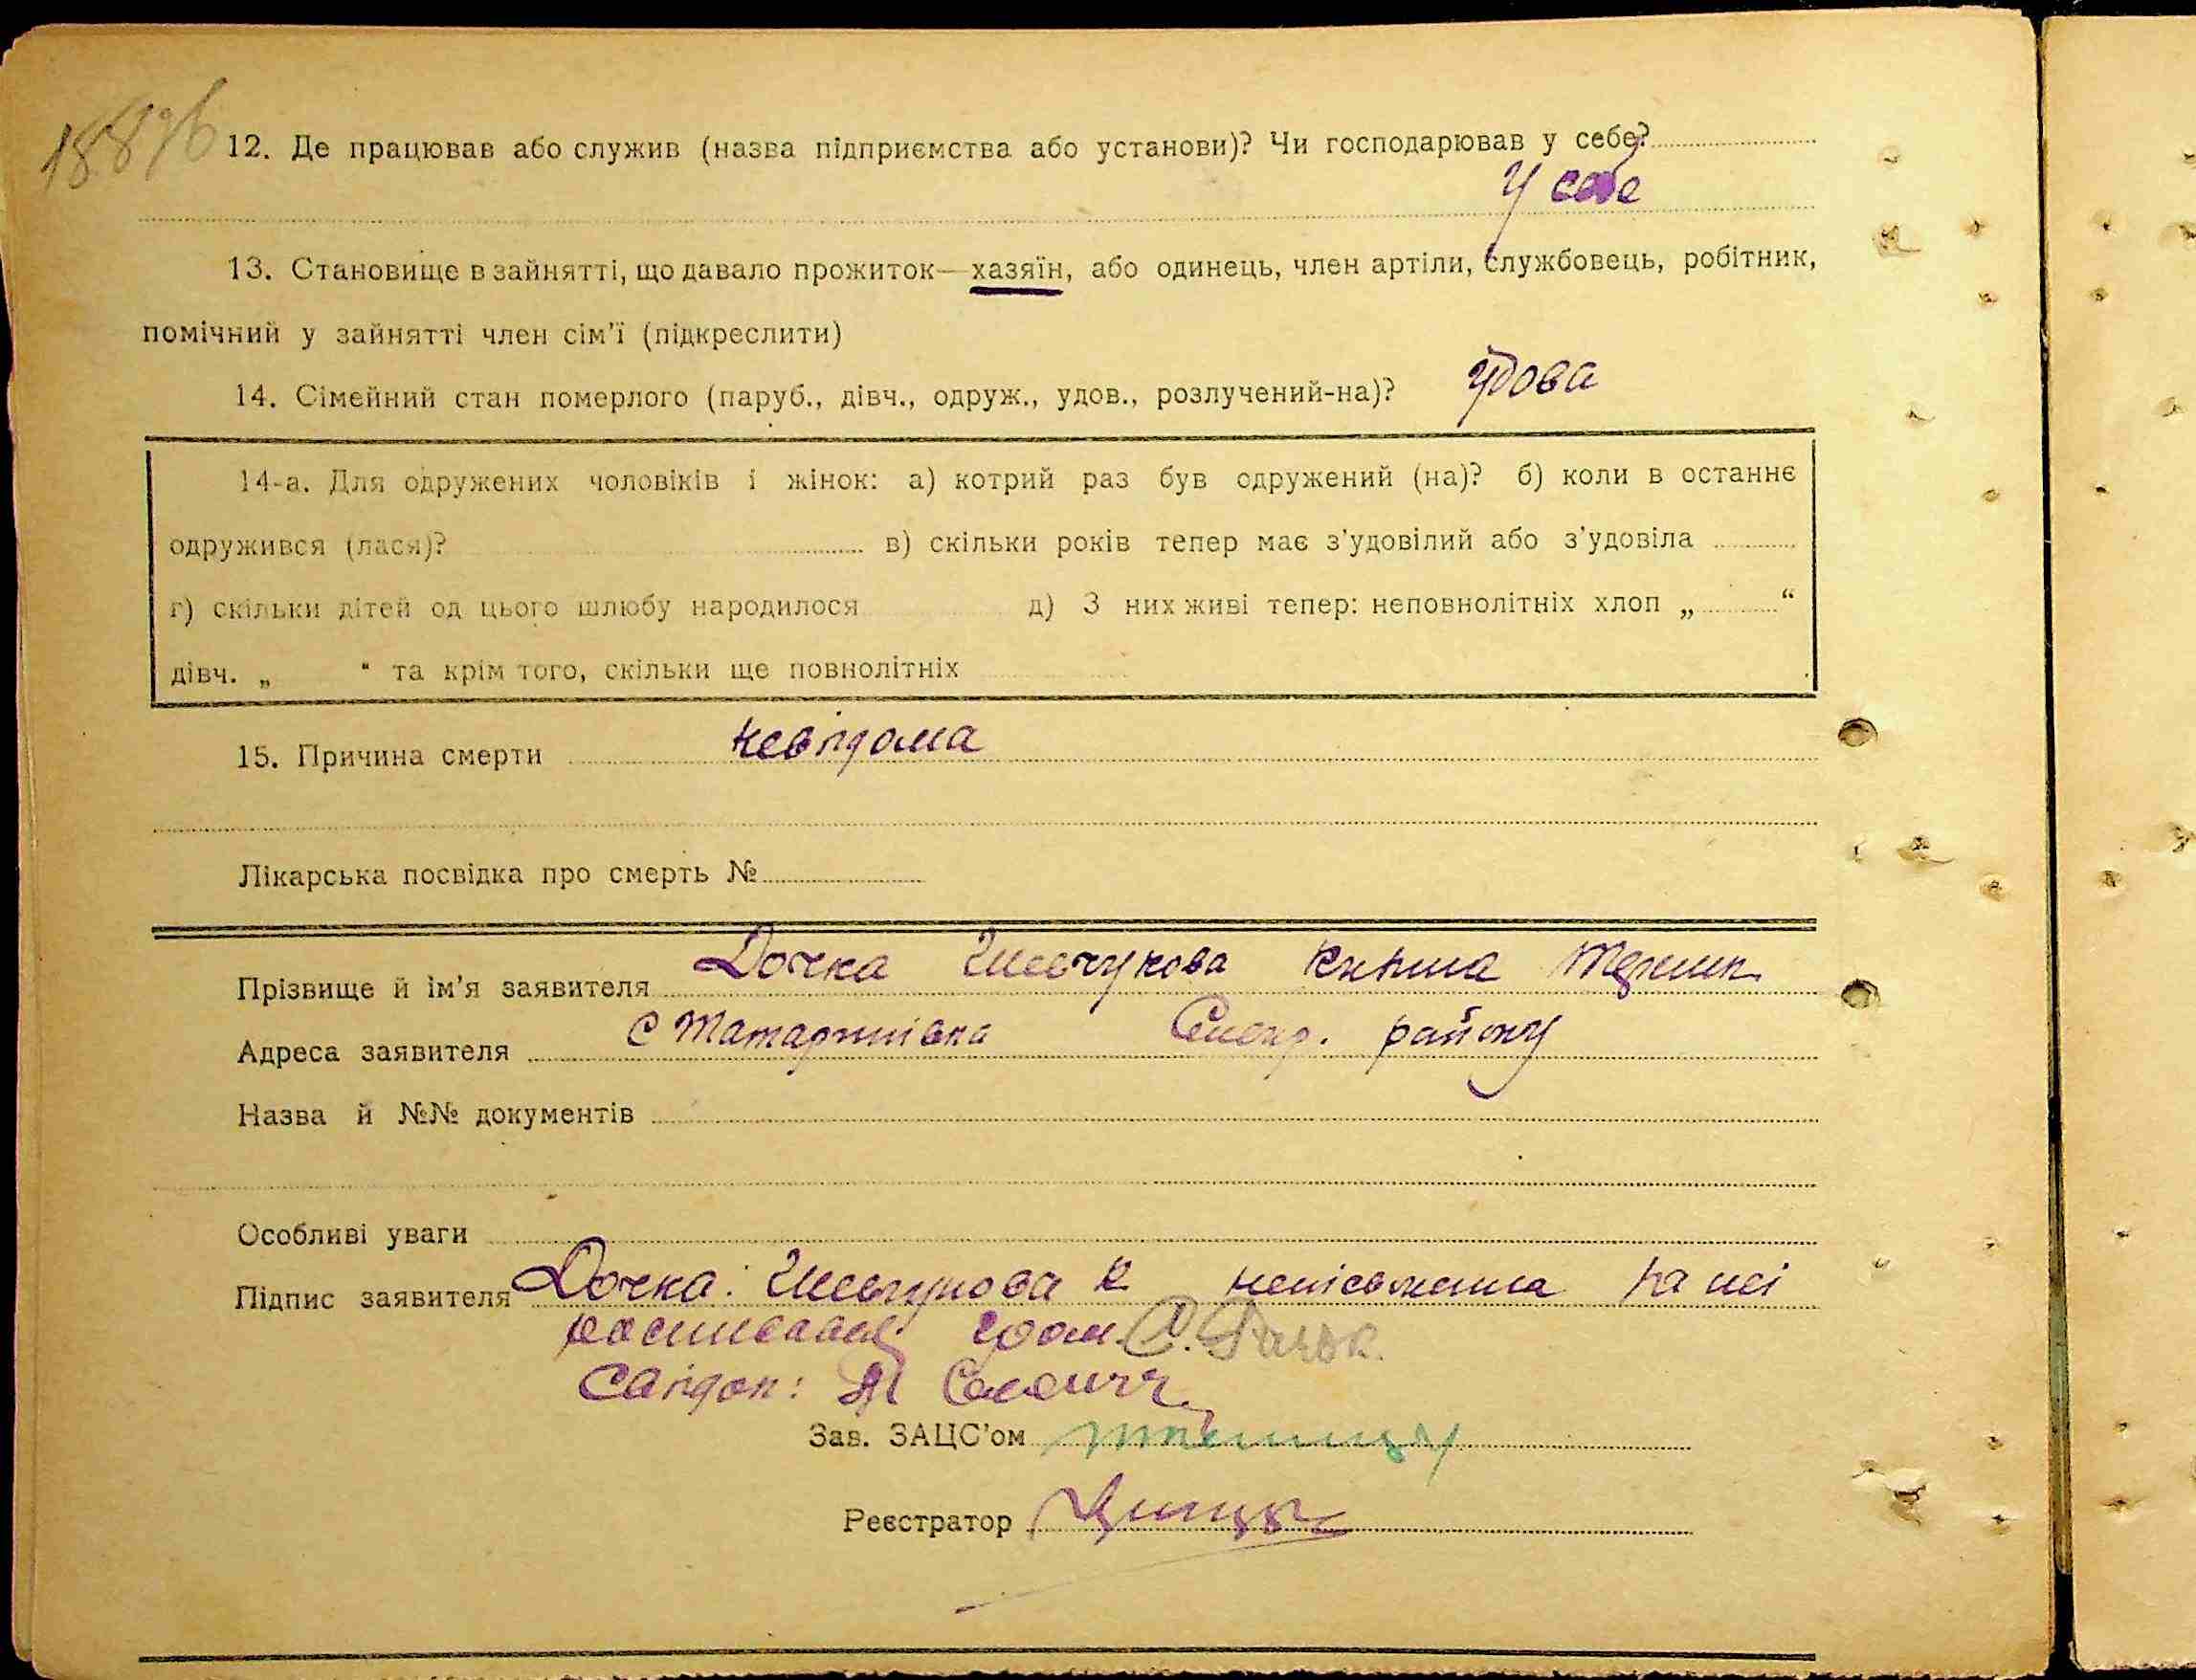 188
12. Де працював або служив (назва підприємства або установи)? Чи господарював у себе?
У себе
13. Становище в зайнятті, що давало прожиток—хазяїн, або одинець, член артіли, службовець, робітник,
помічний у зайнятті член сім'ї (підкреслити)
14. Сімейний стан померлого (паруб., дівч., одруж., удов., розлучений-на)? Удова
14-а. Для одружених чоловіків і жінок: а) котрий раз був одружений (на)? б) коли в останнє
одружився (лася)? в) скільки років тепер має з'удовілий або з'удовіла
г) скільки дітей од цього шлюбу народилося д) З них живі тепер: неповнолітніх хлоп „ “
дівч. „ “ та крім того, скільки ще повнолітніх
15. Причина смерти невідома
Лікарська посвідка про смерть №
Прізвище й ім'я заявителя Дочка Шевчукова
Адреса заявителя с Татаринівка району
Назва й №№ документів
Особливі уваги
Підпис заявителя Дочка: Шевчукова К неписьменна за неї
Свідок:
Зав. ЗАЦС'ом
Реєстратор